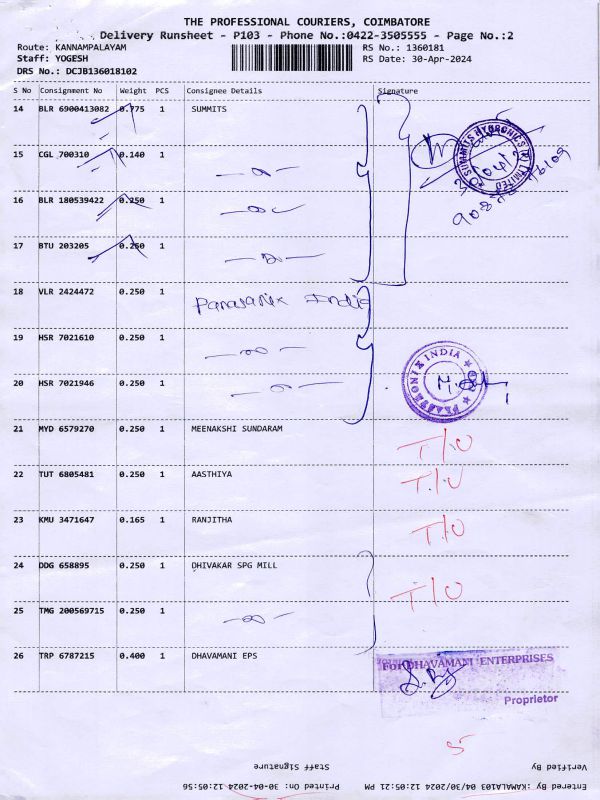 THE PROFESSIONAL COURIERS, COIMBATORE
Delivery Runsheet - P103 - Phone No.:0422-3505555 - Page No.:2
Route: KANNAMPALAYAM RS No.: 1360181
Staff: YOGESH RS Date: 30-Apr-2024
DRS No.: DCJB136018102
S No Consignment No Weight PCS Consignee Details Signature
14 BLR 6900413082 0.775 1 SUMMITS
SUMMITS HYGRONICS (P) LIMITED
15 CGL 700310 0.140 1
16 BLR 180539422 0.250 1
17 BTU 203205 0.250 1
18 VLR 2424472 0.250 1
19 HSR 7021610 0.250 1
20 HSR 7021946 0.250 1
INDIA
21 MYD 6579270 0.250 1 MEENAKSHI SUNDARAM T/O
22 TUT 6805481 0.250 1 AASTHIYA T/O
23 KMU 3471647 0.165 1 RANJITHA T/O
24 DDG 658895 0.250 1 DHIVAKAR SPG MILL T/O
25 TMG 200569715 0.250 1
26 TRP 6787215 0.400 1 DHAVAMANI EPS
For DHAVAMANI ENTERPRISES
Proprietor
Verified By Staff Signature
Entered By :KAMALA103 04/30/2024 12:05:21 PM Printed On: 30-04-2024 12:05:56